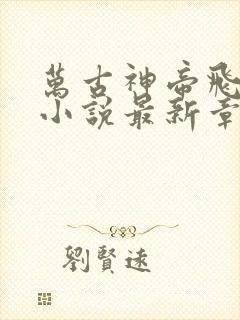 萬古神帝飛
小說最新章
劉賢遠